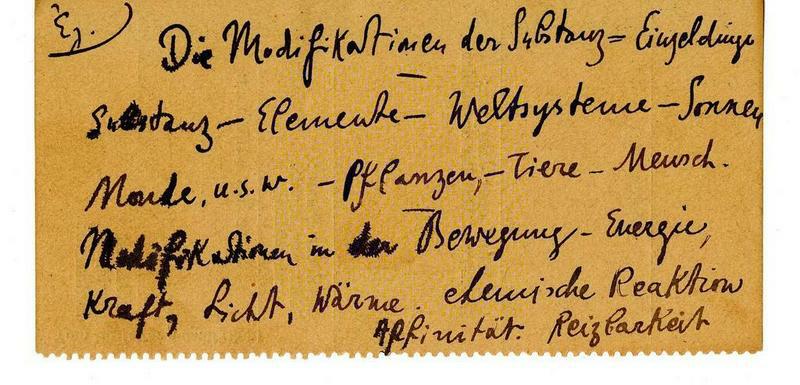 Ej.
Die Modifikationen der Substanz = Einzeldinge
Substanz – Elemente – Weltsysteme – Sonnen
Monde, u.s.w. – Pflanzen, – Tiere – Mensch.
Modifikationen in der Bewegung – Energie,
Kraft, Licht, Wärme. chemische Reaktion
Affinität. Reizbarkeit